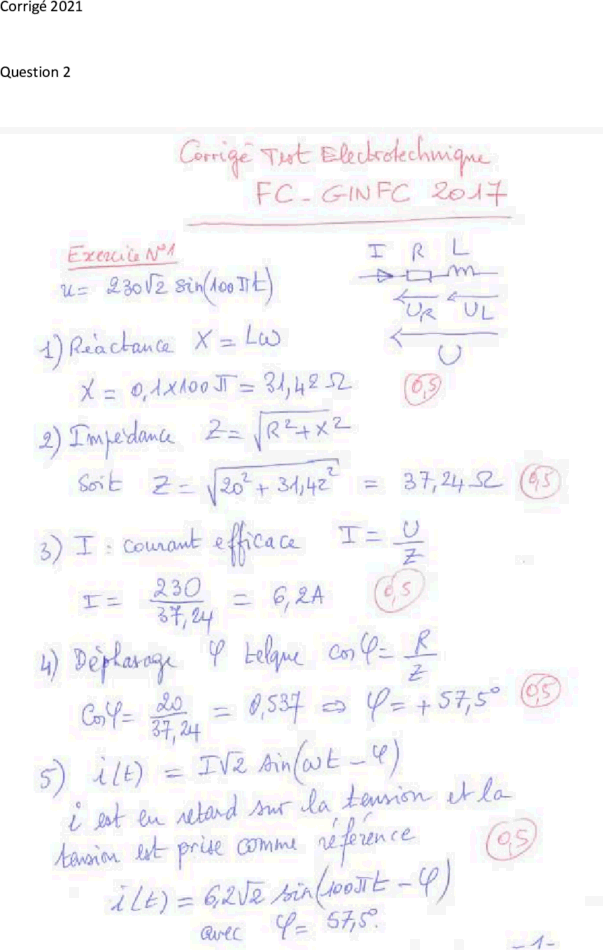 Corrigé 2021
Question 2
Corrigé Test Electrotechnique
FC-GINFC 2017
Exercice N°1
I R L
u = 230√2 sin(100πt)
UR UL
U
1) Réactance X = Lω
X = 0,1x100π = 31,42 Ω 0,5
2) Impédance Z = √R²+X²
Soit Z = √20² + 31,42² = 37,24 Ω 0,5
3) I : courant efficace I = U/Z
I = 230/37,24 = 6,2A 0,5
4) Déphasage φ telque cosφ = R/Z
Cosφ = 20/37,24 = 0,537 ⇒ φ = +57,5° 0,5
5) i(t) = I√2 sin(ωt - φ)
i est en retard sur la tension et la
tension est prise comme référence 0,5
i(t) = 6,2√2 sin(100πt - φ)
avec φ = 57,5°.
-1-